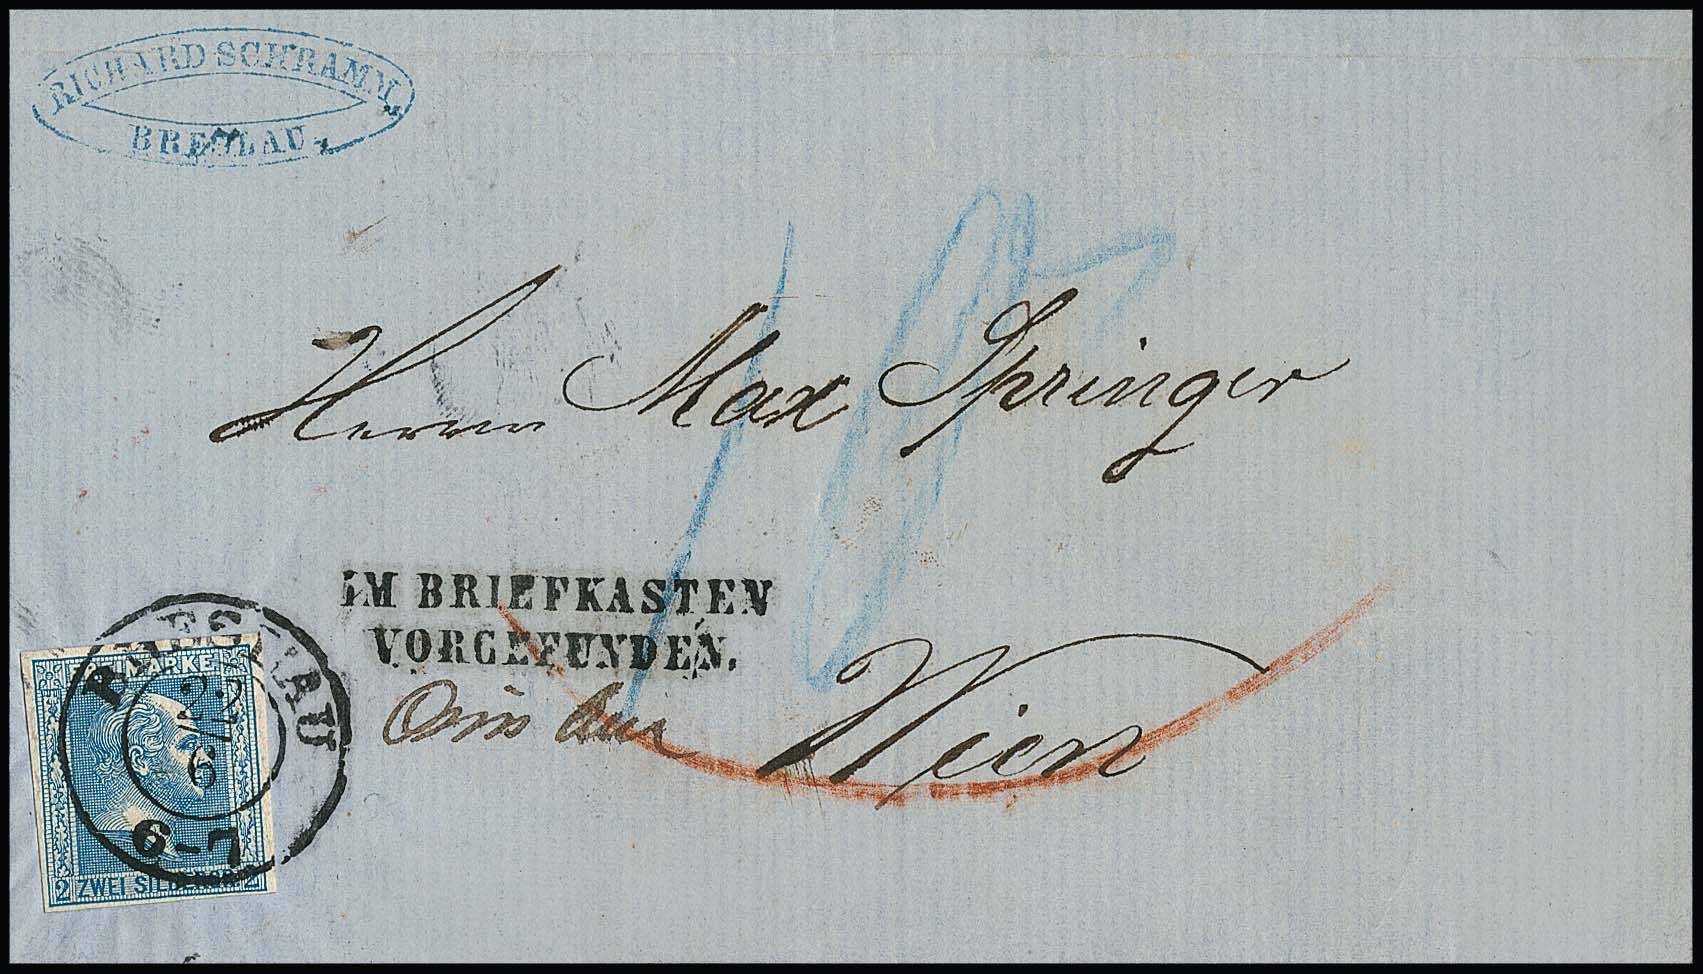 RICHARD SCHRAMM,
BRESLAU
Herrn Max Springer
IM BRIEFKASTEN
VORGEFUNDEN.
Wien
BRESLAU
6-7
FREIMARKE
2 ZWEI SILBERGR. 2